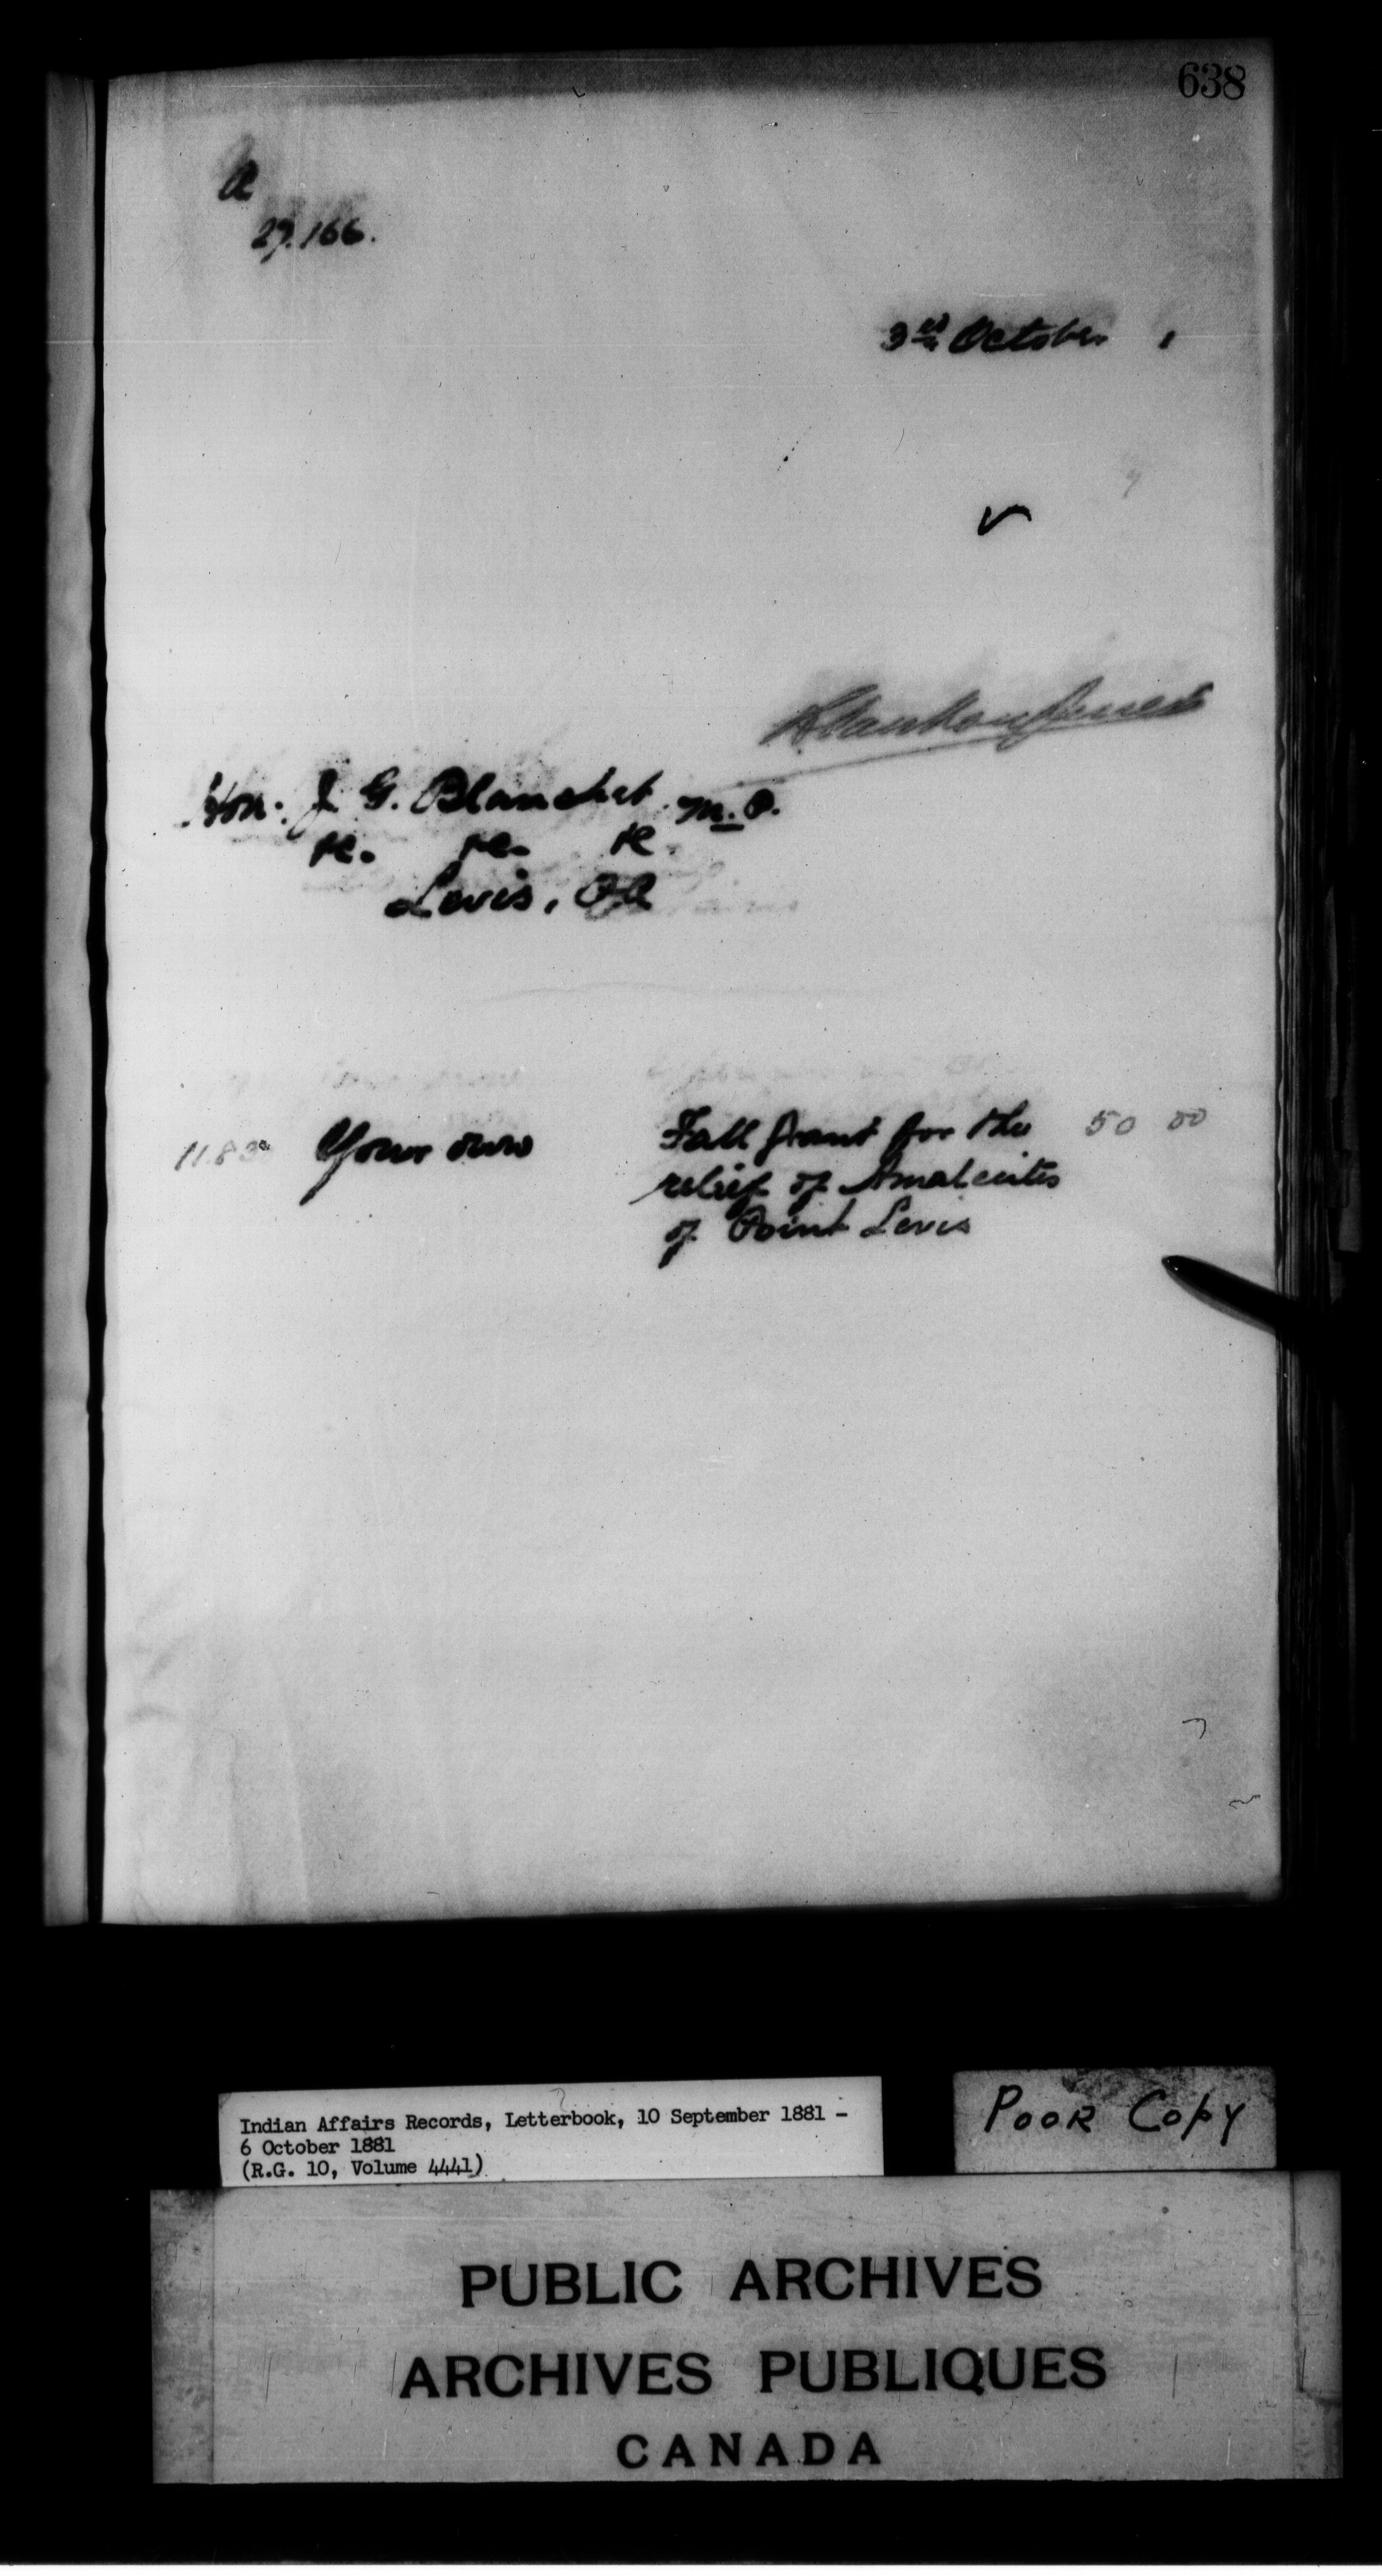 638
27.166.
3rd October 1
Hon. J. G. Blanchet. M.P.
&c. &c. &c.
Levis, PQ
Your own Fall Grant for the 50 00
relief of Amalecites
of Point Levis
Indian Affairs Records, Letterbook, 10 September 1881 -
6 October 1881
(R.G. 10, Volume 4441)
POOR COPY
PUBLIC ARCHIVES
ARCHIVES PUBLIQUES
CANADA